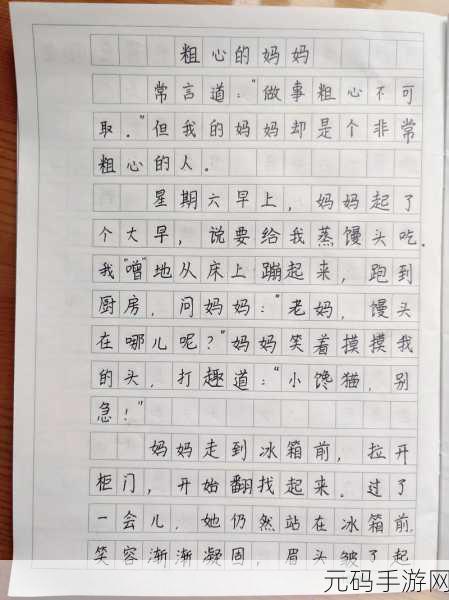 粗心的妈妈
常言道："做事粗心不可
取。"但我的妈妈却是个非常
粗心的人。
星期六早上，妈妈起了
个大早，说要给我蒸馒头吃。
我"噌"地从床上蹦起来，跑到
厨房，问妈妈："老妈，馒头
在哪儿呢？"妈妈笑着摸摸我
的头，打趣道："小馋猫，别
急！"
妈妈走到冰箱前，拉开
柜门，开始翻找起来。过了
一会儿，她仍然站在冰箱前，
笑容渐渐凝固，眉头皱了起
元码手游网